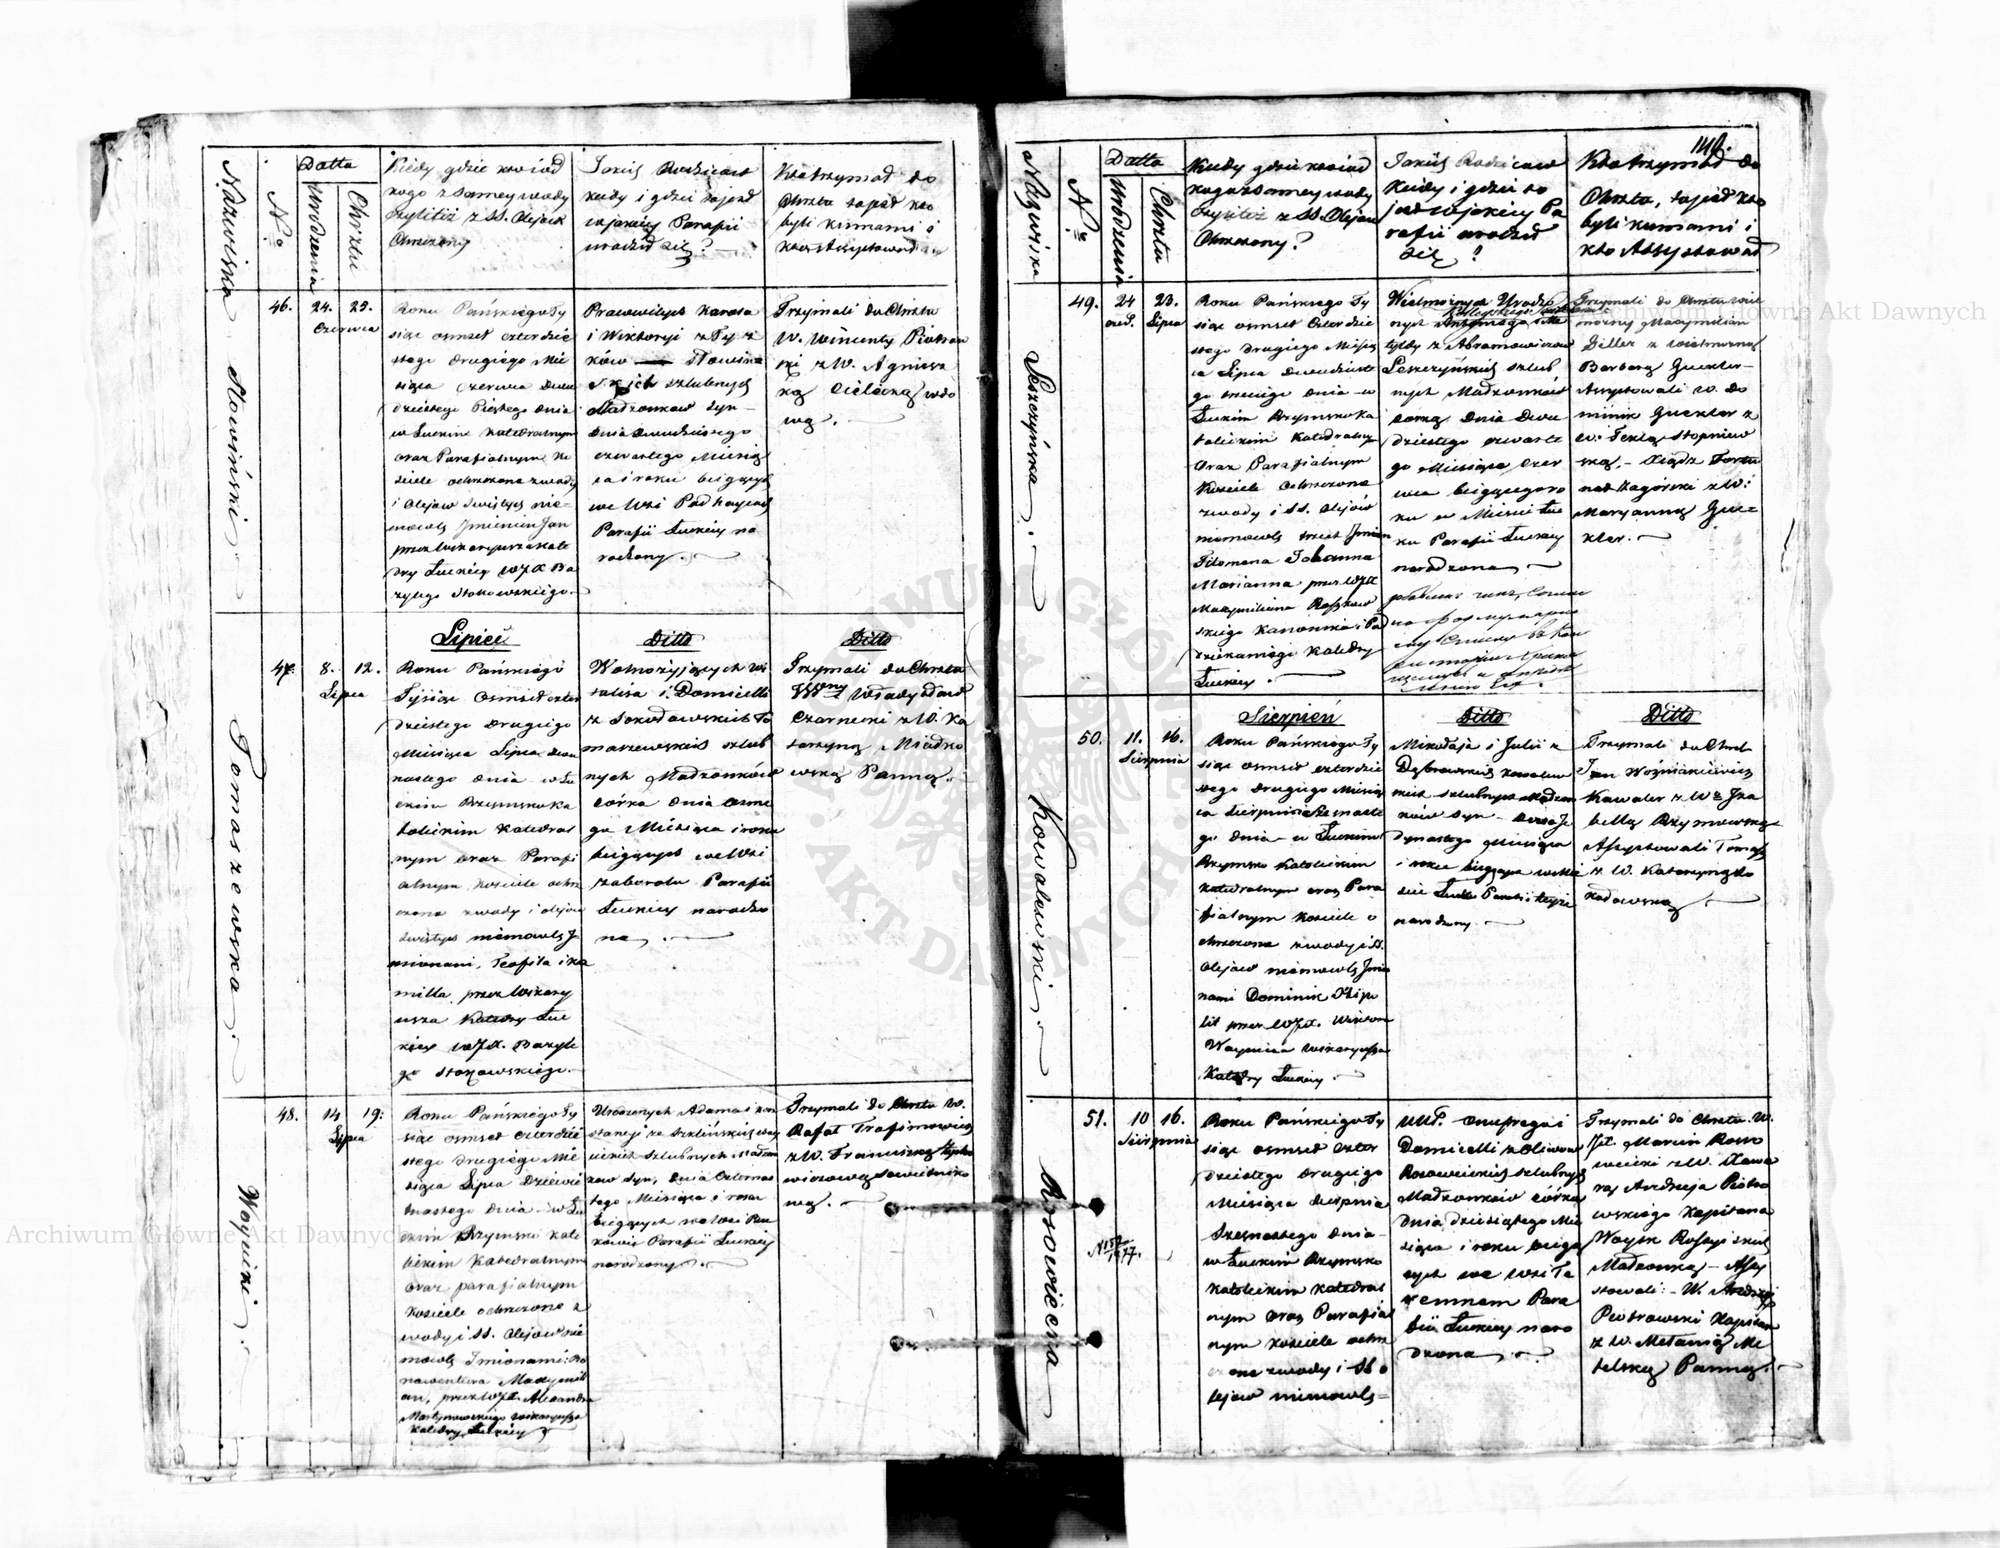 Nazwiska
N.o
Datta
Urodzenia
Chrztu
Kiedy gdzie kto i od
kogo z samey wody
czyliteż z SS. Olejow
Ochrzczony
Jakich Rodzicow
kiedy i gdzie to jest
w jakiey Parafii
urodził się?
Kto trzymał do
Chrztu to jest kto
byli kumami i
kto Assystował
Słowiński.
46.
24.
25.
Czerwca
Roku Pańskiego Ty
siąc osmset czterdzie
stego drugiego Mie
siąca Czerwca dwu
dziestego Piątego dnia
w Łuckim Katedralnym
oraz Parafialnym Ko
ściele ochrzczono z wody
i Olejow Swiętych nie-
mowlę Imieniem Jan
przez Wikaryusza Kate
dry Łuckiey WJX Ba
zylego Stokowskiego.
Prawowitych Karola
i Wiktoryi z
ków Słowińs
kich szlubnych
Małżonkow syn
dnia dwudziestego
czwartego Miesią
ca i roku bieżących
we Wsi Podhaycach
Parafii Łuckiey na
rodzony.
Trzymali do Chrztu
W. Wincenty Piotrow
ski z W. Agniesz
ką Cielecką wdo
wą.
Tomaszewska.
Lipiec
Ditto
Ditto
47.
8.
12.
Lipca
Roku Pańskiego
Tysiąc Osmset czter
dziestego drugiego
Miesiąca Lipca dwu
nastego dnia w Łu
ckim Rzymsko Ka
tolickim Katedral
nym oraz Parafi
alnym kościele ochrz
czona z wody i olejow
Swiętych niemowlę I
mionami, Teofila i Ka
milla przez Wikary
usza Katedry Łuc
kiey WJX. Bazyle
go Stokowskiego.
Wolnożyjących Wi
talisa i Domicelli
z Sokołowskich To
maszewskich szlub
nych Małżonków
córka dnia osme
go Miesiąca i roku
bieżących we Wsi
Zaborolu Parafii
Łuckiey narodzo
na.
Trzymali do Chrztu
Władysław
Czarnecki z W. Ka
tarzyną Miodko
wską Panną.
Woynicki.
48.
14
19:
Lipca
Roku Pańskiego Ty
siąc osmset czterdzie
stego drugiego Mie
siąca Lipca Dziewię
tnastego dnia w Łu
ckim Rzymsko kato
lickim Katedralnym
oraz parafialnym
kościele ochrzczono z
wody i SS. Olejow nie
mowlę Imionami: Bo
nawentura Maxymili
an, przez WJX. Alexandra
Martynowskiego Wikaryusza
Katedry Łuckiey
Urodzonych Adama i Kon
stancyi ze Szklińskich Woy
nickich szlubnych Małżon
kow syn, dnia Czternas
tego Miesiąca i roku
bieżących we Wsi
Parafii Łuckiey
narodzony.
Trzymali do Chrztu W.
Rafał Trafimowicz
z W. Franciszką
Sowietniko
wą.
148.
Nazwiska
N.o
Datta
Urodzenia
Chrztu
Kiedy gdzie kto i od
kogo z samey wody
czyliteż z SS. Olejow
Ochrzczony?
Jakich Rodzicow
Kiedy i gdzie to
jest w jakiey Pa
rafii urodził
się?
Kto trzymał do
Chrztu, to jest kto
byli kumami i
kto Assystował
Leszczyńska.
49.
24
Czer.
23.
Lipca
Roku Pańskiego Ty
siąc osmset czterdzie
stego drugiego Miesią
ca Lipca dwudzieste
go trzeciego dnia w
Łuckim Rzymsko Ka
tolickim Katedralnym
oraz Parafialnym
Kościele ochrzczono
z wody i SS. Olejów
niemowlę trzech Imion
Filomena Johanna
Marianna przez WJX
Maxymiliana
skiego Kanonika i Pod
dziekaniego Katedry
Łuckiey.
Wielmożnych Urodzo
nych
z Abramowiczow
Leszczyńskich szlub
nych Małżonków
corka Dnia Dwu
dziestego czwarte
go Miesiąca Czer
wca bieżącego ro
ku w Mieście Łuc
ku Parafii Łuckiey
narodzona.
Trzymali do Chrztu Wiel
możny Maxymilian
Giller z Wielmożną
Barbarą Guckler
Assystowali W. Do
minik Guckler z
W. Teklą Stopniew
ską, Xiądz Fortu
nat Zagórski z W:
Maryanną Guc-
kler.
Kowalewski.
Sierpień
Ditto
Ditto
50.
11.
16.
Sierpnia
Roku Pańskiego Ty
siąc osmset czterdzie
stego drugiego Miesią
ca Sierpnia Szesnaste
go dnia w Łuckim
Rzymsko Katolickim
Katedralnym oraz Para
fialnym kościele o
chrzczono z wody i SS.
Olejow niemowlę Imio
nami Dominik Hipo
lit przez WJX. Wiktora
Woynicza Wikaryusza
Katedry Łuckiey.
Mikołaja i Julii z
Dąbrowskich Kowalew
skich szlubnych Małżon
ków syn
dynastego Miesiąca
i roku bieżącego w Mie
ście Łucku Parafii tejże
narodzony.
Trzymali do Chrztu
Jan Woźniakiewicz
Kawaler z W. Iza
bellą Rzymowską
Assystowali Tomasz
z W. Katarzyną So
kołowską
Rosowiecka
51.
10
16.
Sierpnia
N 157/1877.
Roku Pańskiego Ty
siąc osmset czter
dziestego drugiego
Miesiąca Sierpnia
Szesnastego dnia
w Łuckim Rzymsko
Katolickim Katedral
nym oraz Parafial
nym kościele ochrz
czono z wody i SS O
lejow niemowlę=
UUr. Onufrego i
Domicelli z Oliwów
Rosowieckich szlubnych
Małżonków córka
Dnia dziesiątego Mie
siąca i roku bieżą
cych we Wsi Te
remnem Para
fii Łuckiey naro
dzona.
Trzymali do Chrztu W.
Marcin Roso
wiecki z W. Xawe
rą Andrzeja Piotro
wskiego Kapitana
Woysk Rossyiskich
Małżonką Assy
stowali: W. Andrzej
Piotrowski Kapitan
z W. Melanią Me
telską Panną.
Archiwum Główne Akt Dawnych
Archiwum Główne Akt Dawnych
ARCHIWUM GŁÓWNE AKT DAWNYCH